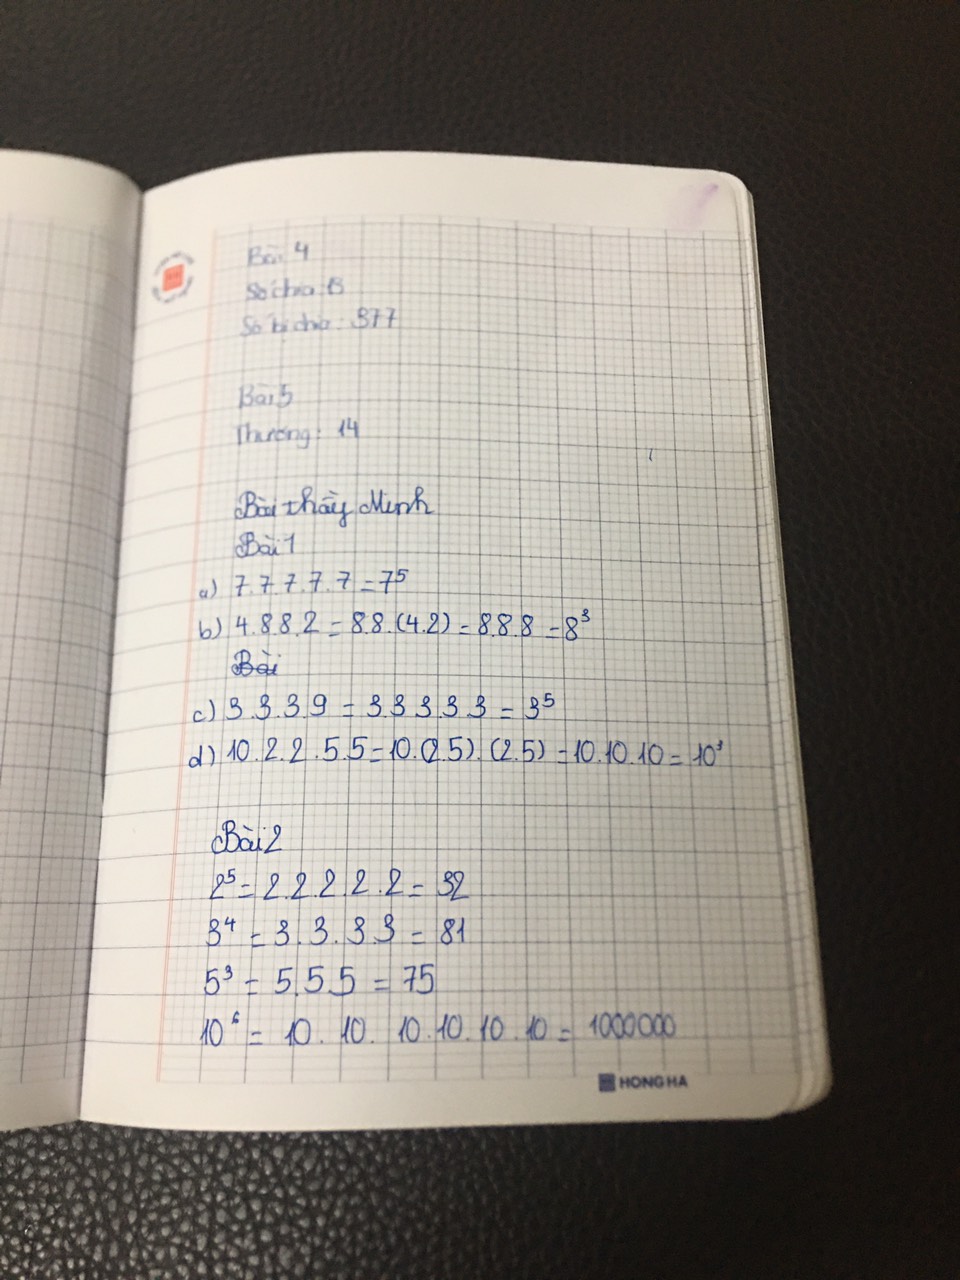 Bài 4
Số chia: 13
Số bị chia: 377
Bài 5
Thương: 14
Bài thầy Minh
Bài 1
a) 7.7.7.7.7 = 7⁵
b) 4.8.8.2 = 8.8.(4.2) = 8.8.8 = 8³
Bài
c) 3.3.3.9 = 3.3.3.3.3 = 3⁵
d) 10.2.2.5.5 = 10.(2.5).(2.5) = 10.10.10 = 10³
Bài 2
2⁵ = 2.2.2.2.2 = 32
3⁴ = 3.3.3.3 = 81
5³ = 5.5.5 = 75
10⁶ = 10.10.10.10.10.10 = 1000000
HONG HA